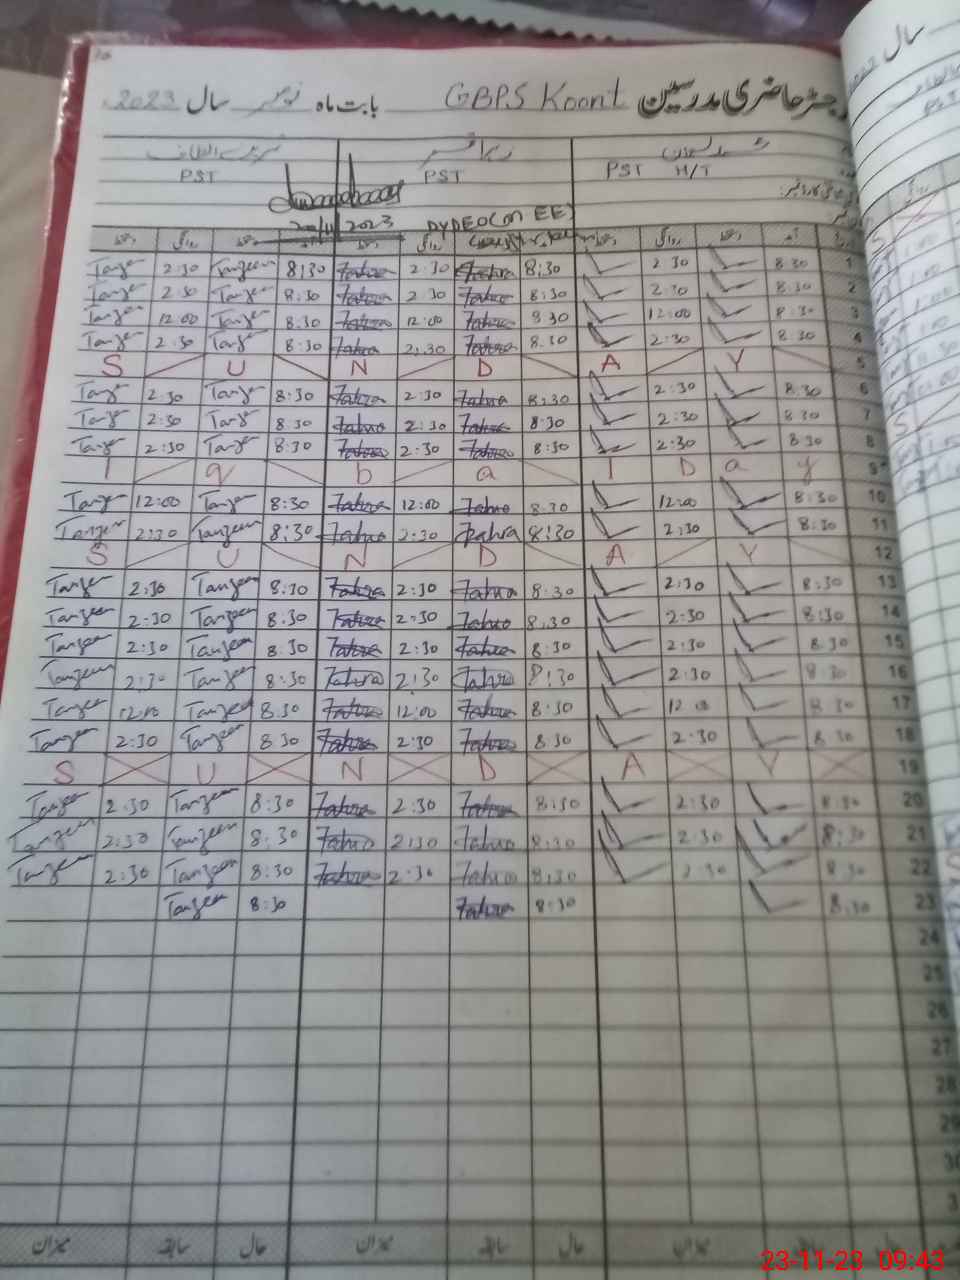 رجسٹر حاضری مدرسین GBPS Koont بابت ماہ نومبر سال 2023
PST H/T PST PST
2023 DYDEO(M EE)
Tanzeem 2:30 Tanzeem 8:30 Zahra 2:30 Zahra 8:30 2:30 8:30 1
Tanzeem 2:30 Tanzeem 8:30 Zahra 2:30 Zahra 8:30 2:30 8:30 2
Tanzeem 12:00 Tanzeem 8:30 Zahra 12:00 Zahra 8:30 12:00 8:30 3
Tanzeem 2:30 Tanzeem 8:30 Zahra 2:30 Zahra 8:30 2:30 8:30 4
S U N D A Y 5
Tanzeem 2:30 Tanzeem 8:30 Zahra 2:30 Zahra 8:30 2:30 8:30 6
Tanzeem 2:30 Tanzeem 8:30 Zahra 2:30 Zahra 8:30 2:30 8:30 7
Tanzeem 2:30 Tanzeem 8:30 Zahra 2:30 Zahra 8:30 2:30 8:30 8
I q b a l D a y 9
Tanzeem 12:00 Tanzeem 8:30 Zahra 12:00 Zahra 8:30 12:00 8:30 10
Tanzeem 2:30 Tanzeem 8:30 Zahra 2:30 Zahra 8:30 2:30 8:30 11
S U N D A Y 12
Tanzeem 2:30 Tanzeem 8:30 Zahra 2:30 Zahra 8:30 2:30 8:30 13
Tanzeem 2:30 Tanzeem 8:30 Zahra 2:30 Zahra 8:30 2:30 8:30 14
Tanzeem 2:30 Tanzeem 8:30 Zahra 2:30 Zahra 8:30 2:30 8:30 15
Tanzeem 2:30 Tanzeem 8:30 Zahra 2:30 Zahra 8:30 2:30 8:30 16
Tanzeem 12:00 Tanzeem 8:30 Zahra 12:00 Zahra 8:30 12:00 8:30 17
Tanzeem 2:30 Tanzeem 8:30 Zahra 2:30 Zahra 8:30 2:30 8:30 18
S U N D A Y 19
Tanzeem 2:30 Tanzeem 8:30 Zahra 2:30 Zahra 8:30 2:30 8:30 20
Tanzeem 2:30 Tanzeem 8:30 Zahra 2:30 Zahra 8:30 2:30 8:30 21
Tanzeem 2:30 Tanzeem 8:30 Zahra 2:30 Zahra 8:30 2:30 8:30 22
Tanzeem 8:30 Zahra 8:30 8:30 23
24
25
26
27
28
29
30
میزان سابقہ حال میزان سابقہ حال میزان سابقہ حال
23-11-23 09:43